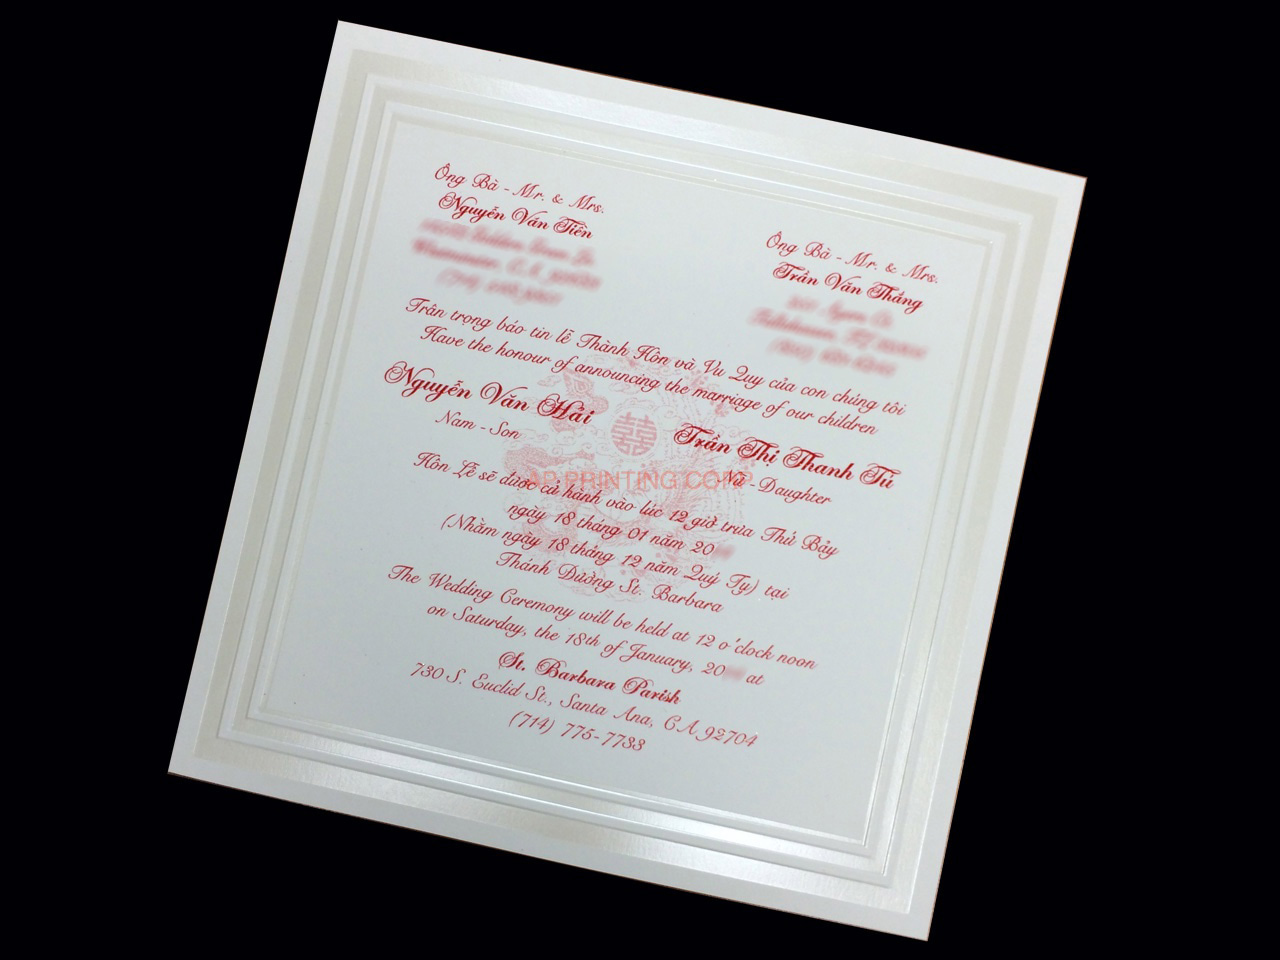 Ông Bà - Mr. & Mrs.
Nguyễn Văn Tiến
Ông Bà - Mr. & Mrs.
Trần Văn Thắng
Trân trọng báo tin lễ Thành Hôn và Vu Quy của con chúng tôi
Have the honour of announcing the marriage of our children
Nguyễn Văn Hải
Nam - Son
Trần Thị Thanh Tú
Nữ - Daughter
囍
AP PRINTING CORP
Hôn Lễ sẽ được cử hành vào lúc 12 giờ trưa Thứ Bảy
ngày 18 tháng 01 năm 20
(Nhằm ngày 18 tháng 12 năm Quý Tỵ) tại
Thánh Đường St. Barbara
The Wedding Ceremony will be held at 12 o'clock noon
on Saturday, the 18th of January, 20 at
St. Barbara Parish
730 S. Euclid St., Santa Ana, CA 92704
(714) 775-7733